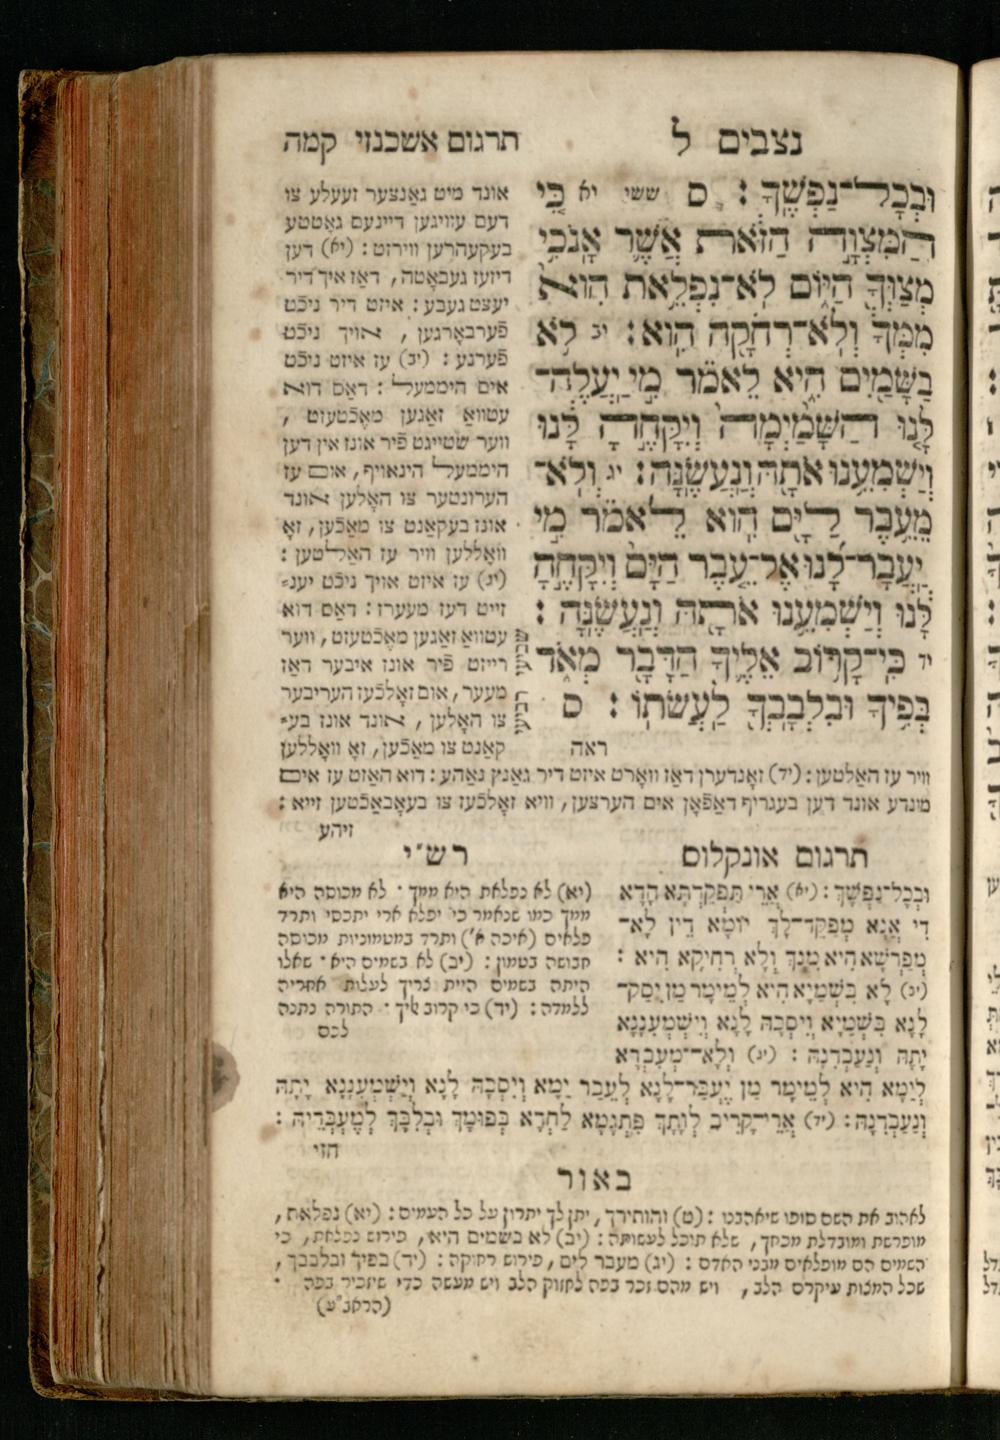 נצבים ל
תרגום אשכנזי קמה
וּבְכָל־נַפְשֶֽׁךָ׃ ס ששי יא כִּ֚י
הַמִּצְוָ֣ה הַזֹּ֔את אֲשֶׁ֛ר אָֽנֹכִ֥י
מְצַוְּךָ֖ הַיּ֑וֹם לֹֽא־נִפְלֵ֥את הִוא֙
מִמְּךָ֔ וְלֹֽא־רְחֹקָ֖ה הִֽוא׃ יב לֹ֥א
בַשָּׁמַ֖יִם הִ֑יא לֵאמֹ֗ר מִ֣י יַֽעֲלֶה־
לָּ֤נוּ הַשָּׁמַ֙יְמָה֙ וְיִקָּחֶ֣הָ לָּ֔נוּ
וְיַשְׁמִעֵ֥נוּ אֹתָ֖הּ וְנַֽעֲשֶֽׂנָּה׃ יג וְלֹֽא־
מֵעֵ֥בֶר לַיָּ֖ם הִ֑וא לֵאמֹ֗ר מִ֣י
יַֽעֲבָר־לָ֜נוּ אֶל־עֵ֤בֶר הַיָּם֙ וְיִקָּחֶ֣הָ
לָּ֔נוּ וְיַשְׁמִעֵ֥נוּ אֹתָ֖הּ וְנַֽעֲשֶֽׂנָּה׃
יד כִּֽי־קָר֥וֹב אֵלֶ֛יךָ הַדָּבָ֖ר מְאֹ֑ד
בְּפִ֥יךָ וּבִֽלְבָבְךָ֖ לַֽעֲשֹׂתֽוֹ׃ ס
ראה
שביעי רביעי
אונד מיט גאַנצער זעעלע צו
דעם עוויגען דיינעם גאָטטע
בעקעהרען ווירסט: (יא) דען
דיזעז געבאָטה, דאַז איך דיר
יעצט געבע: איזט דיר ניכֿט
פֿערבאָרגען, אויך ניכֿט
פֿערנע: (יב) עז איזט ניכֿט
אים היממעל: דאַס דוא
עטוואַ זאַגען מאֶכֿטעסט,
ווער שטייגט פֿיר אונז אין דען
היממעל הינאויף, אום עז
הערונטער צו האָלען אונד
אונז בעקאַנט צו מאַכֿען, זאָ
וואָללען וויר עז האַלטען:
(יג) עז איזט אויך ניכֿט יענ־
זייט דעז מעערז: דאַס דוא
עטוואַ זאַגען מאֶכֿטעסט, ווער
רייזט פֿיר אונז איבער דאַז
מעער, אום זאָלכֿעז העריבער
צו האָלען, אונד אונז בע־
קאַנט צו מאַכֿען, זאָ וואָללען
וויר עז האַלטען: (יד) זאָנדערן דאַז וואָרט איזט דיר גאַנץ נאַהע: דוא האַזט עז אים
מונדע אונד דען בעגריף דאַפֿאָן אים הערצען, וויא זאָלכֿעז צו בעאָבאַכֿטען זייא:
זיהע
תרגום אונקלוס
וּבְכָל־נַפְשָׁךְ: (יא) אֲרֵי תַּפְקֶדְתָּא הָדָא
דִי אֲנָא מְפַקֵּד־לָךְ יוֹמָא דֵין לָא־
מְפָרְשָׁא הִיא מִנָּךְ וְלָא רְחִיקָא הִיא:
(יב) לָא בִשְׁמַיָּא הִיא לְמֵימַר מַן יִסַּק־
לָנָא בִּשְׁמַיָּא וְיִסְּבַהּ לָנָא וְיַשְׁמְעִנָּנָא
יָתַהּ וְנַעְבְּדִנַּהּ: (יג) וְלָא־מֵעִבְרָא
לְיַמָּא הִיא לְמֵימַר מַן יֶעֱבַּר־לָנָא לְעֵבַר יַמָּא וְיִסְּבַהּ לָנָא וְיַשְׁמְעִנָּנָא יָתַהּ
וְנַעְבְּדִנַּהּ: (יד) אֲרֵי־קָרִיב לְוָתָךְ פִּתְגָּמָא לַחְדָּא בְּפוּמָךְ וּבְלִבָּךְ לְמֶעְבְּדֵיהּ:
חזי
רש״י
(יא) לא נפלאת היא ממך · לא מכוסה היא
ממך כמו שנאמר כי יפלא ארי יתכסי ותרד
פלאים (איכה א׳) ותרד במטמוניות מכוסה
חבושה בטמון: (יב) לא בשמים היא · שאלו
היתה בשמים היית צריך לעלות אחריה
ללמדה: (יד) כי קרוב אליך · התורה נתנה
לכם
באור
לאהוב את השם סופו שיאהבנו: (ט) והותירך, יתן לך יתרון על כל העמים: (יא) נפלאת,
מופרשת ומובדלת מכחך, שלא תוכל לעשותה: (יב) לא בשמים היא, פירוש נפלאת, כי
השמים הם מופלאים מבני האדם: (יג) מעבר לים, פירוש רחוקה: (יד) בפיך ובלבבך,
שכל המצות עיקרם הלב, ויש מהם זכר בפה לחזוק הלב ויש מעשה כדי שיזכיר בפה ·
(הראב״ע)